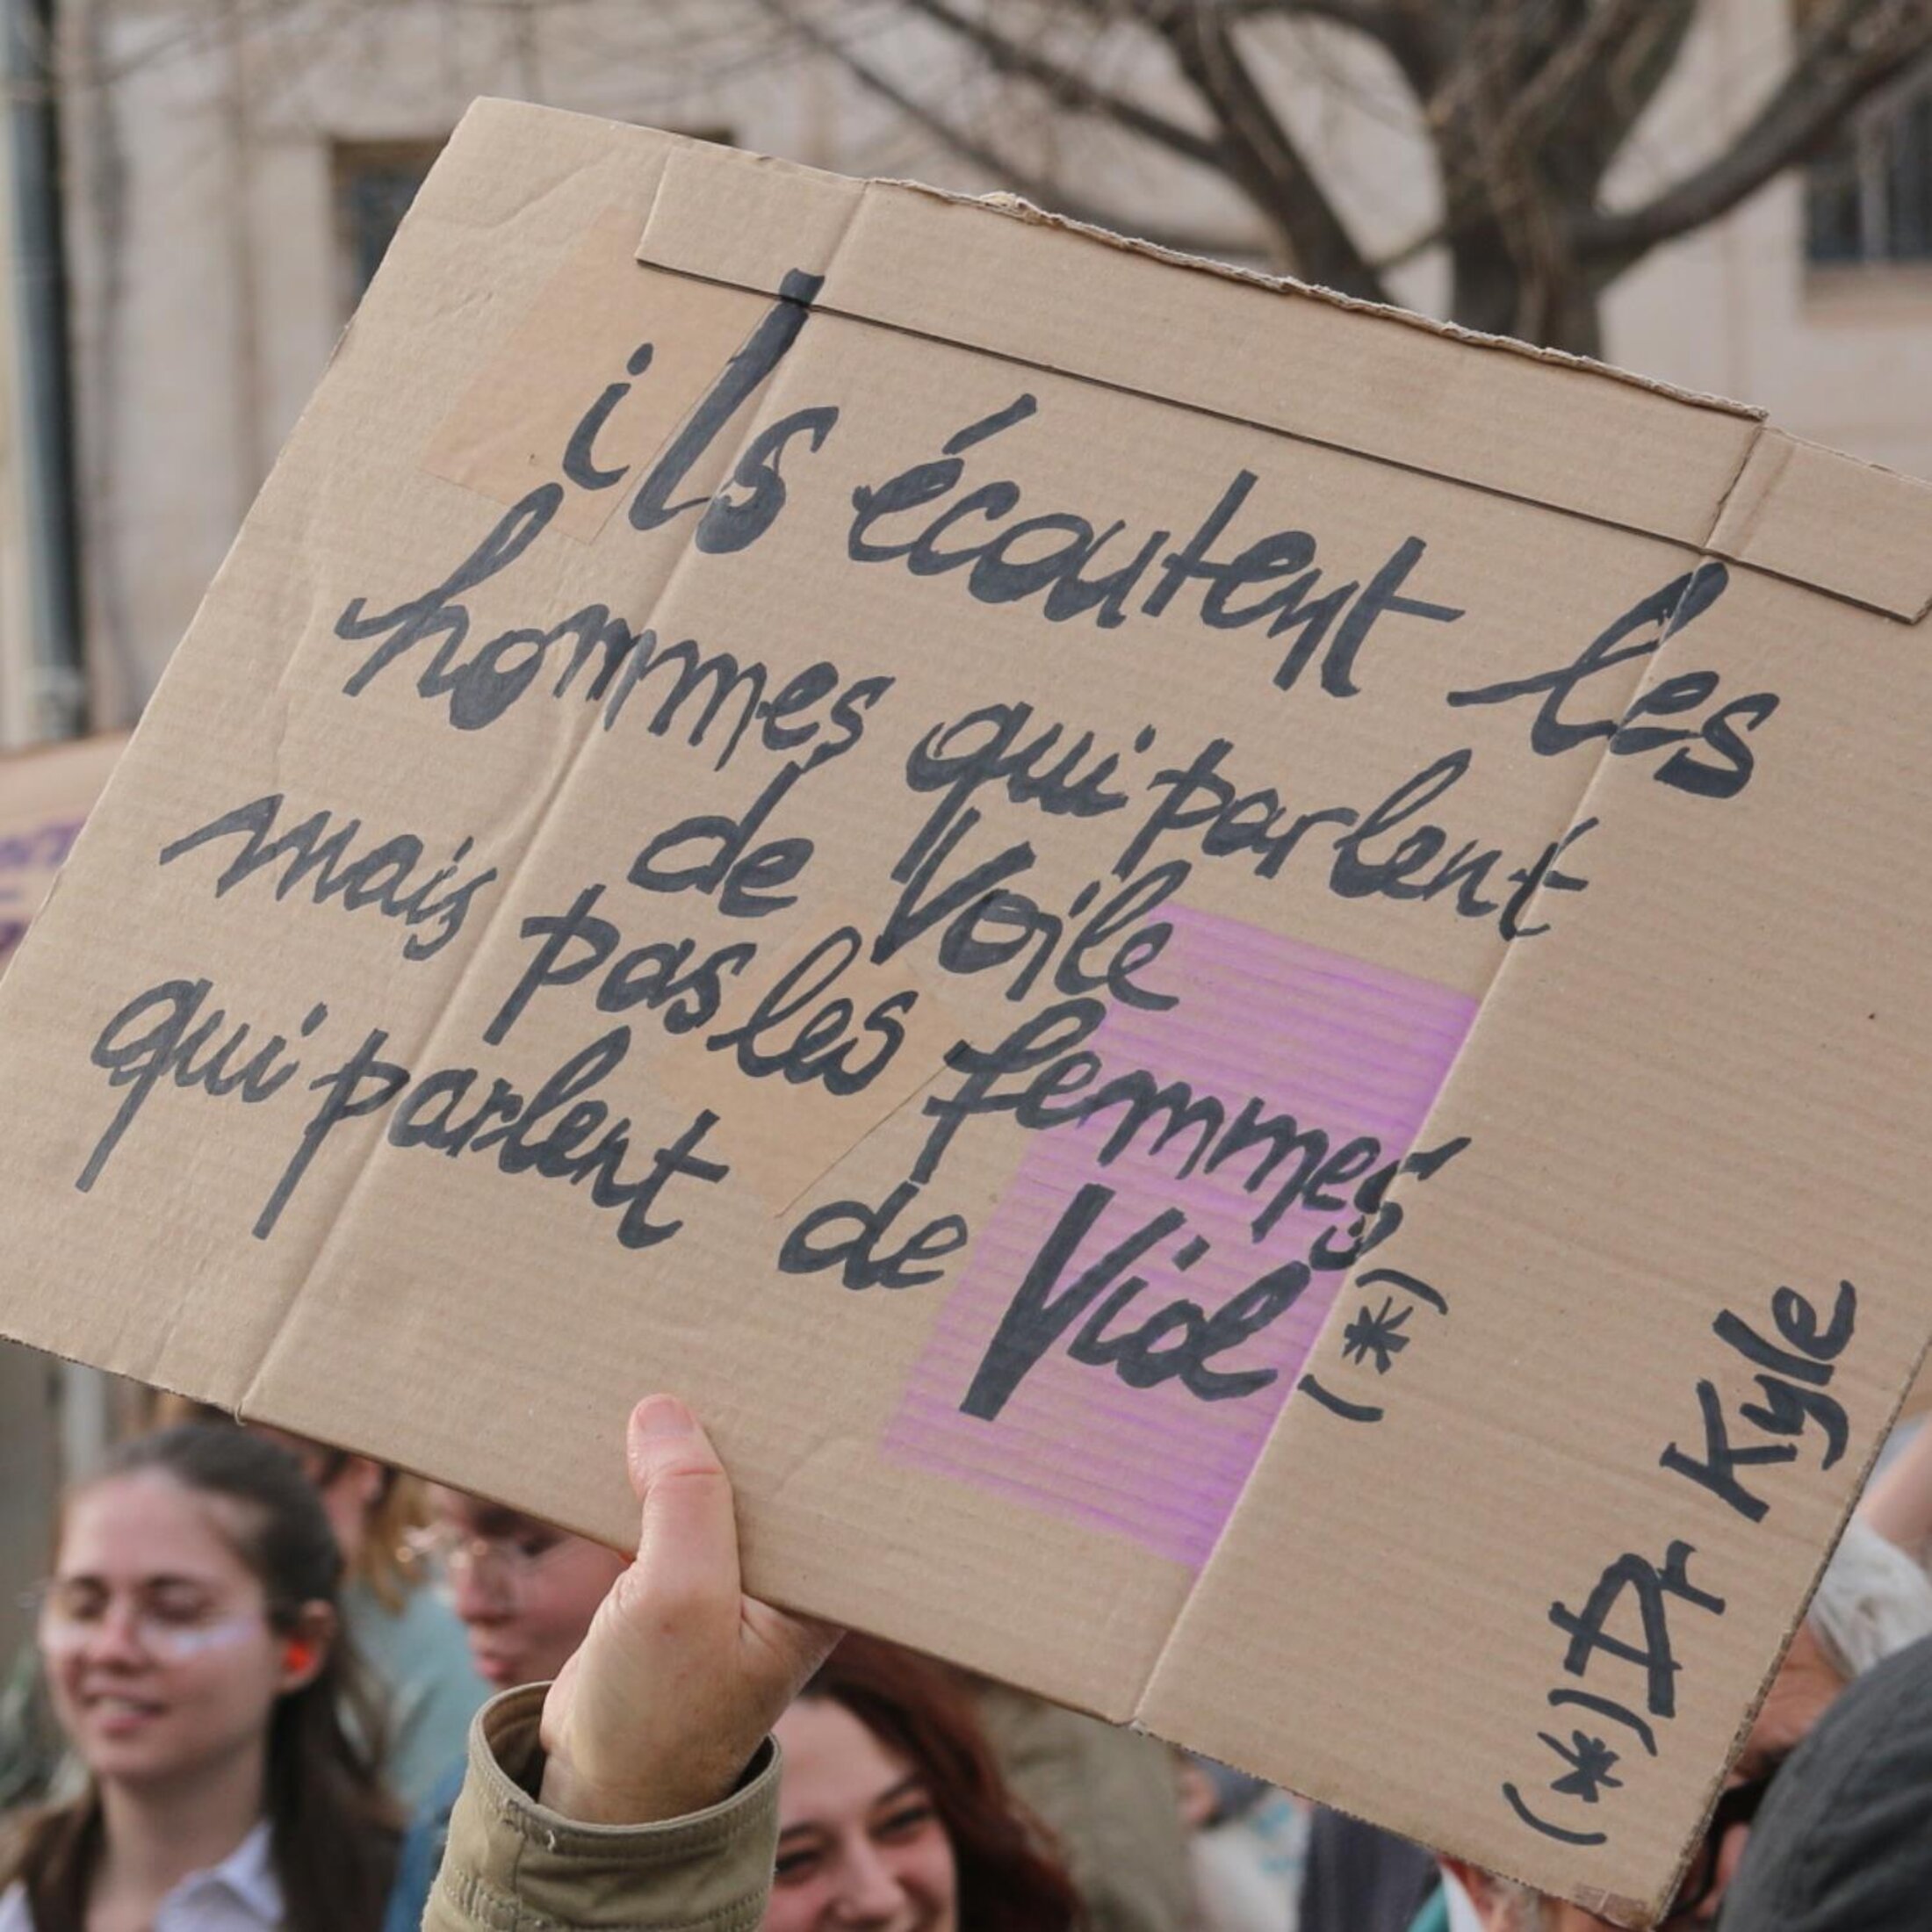 ils écoutent les
hommes qui parlent
de Voile
mais pas les femmes
qui parlent de Viol
(*)
(*) Dr Kyle